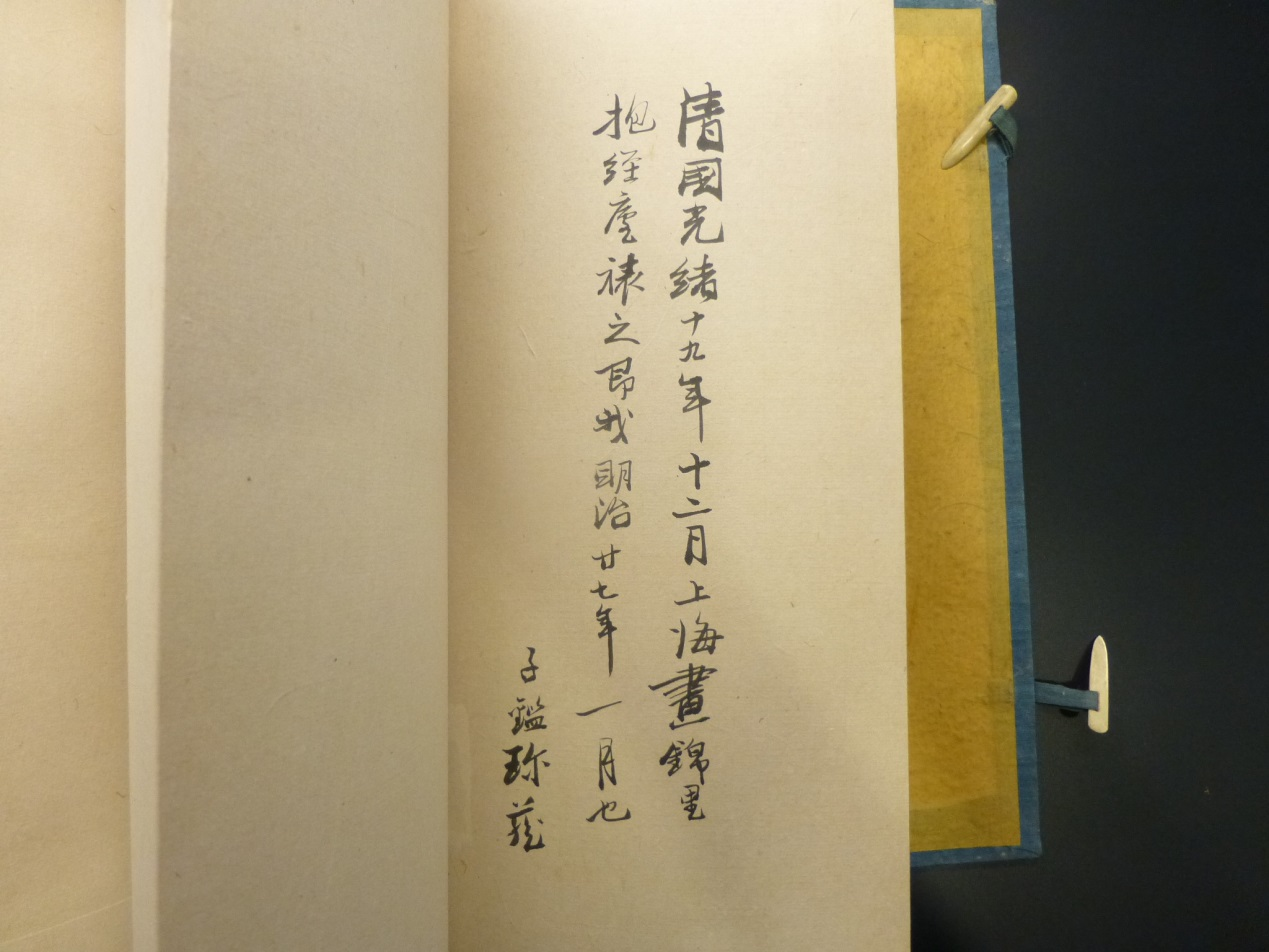 清國光緒十九年十二月上海畫錦里
抱經廬裱之即我明治廿七年一月也
子鑑珎藏